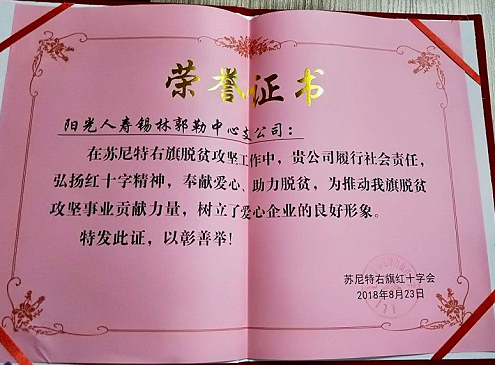 荣誉证书
阳光人寿锡林郭勒中心支公司：
在苏尼特右旗脱贫攻坚工作中，贵公司履行社会责任，
弘扬红十字精神，奉献爱心、助力脱贫，为推动我旗脱贫
攻坚事业贡献力量，树立了爱心企业的良好形象。
特发此证，以彰善举！
苏尼特右旗红十字会
2018年8月23日